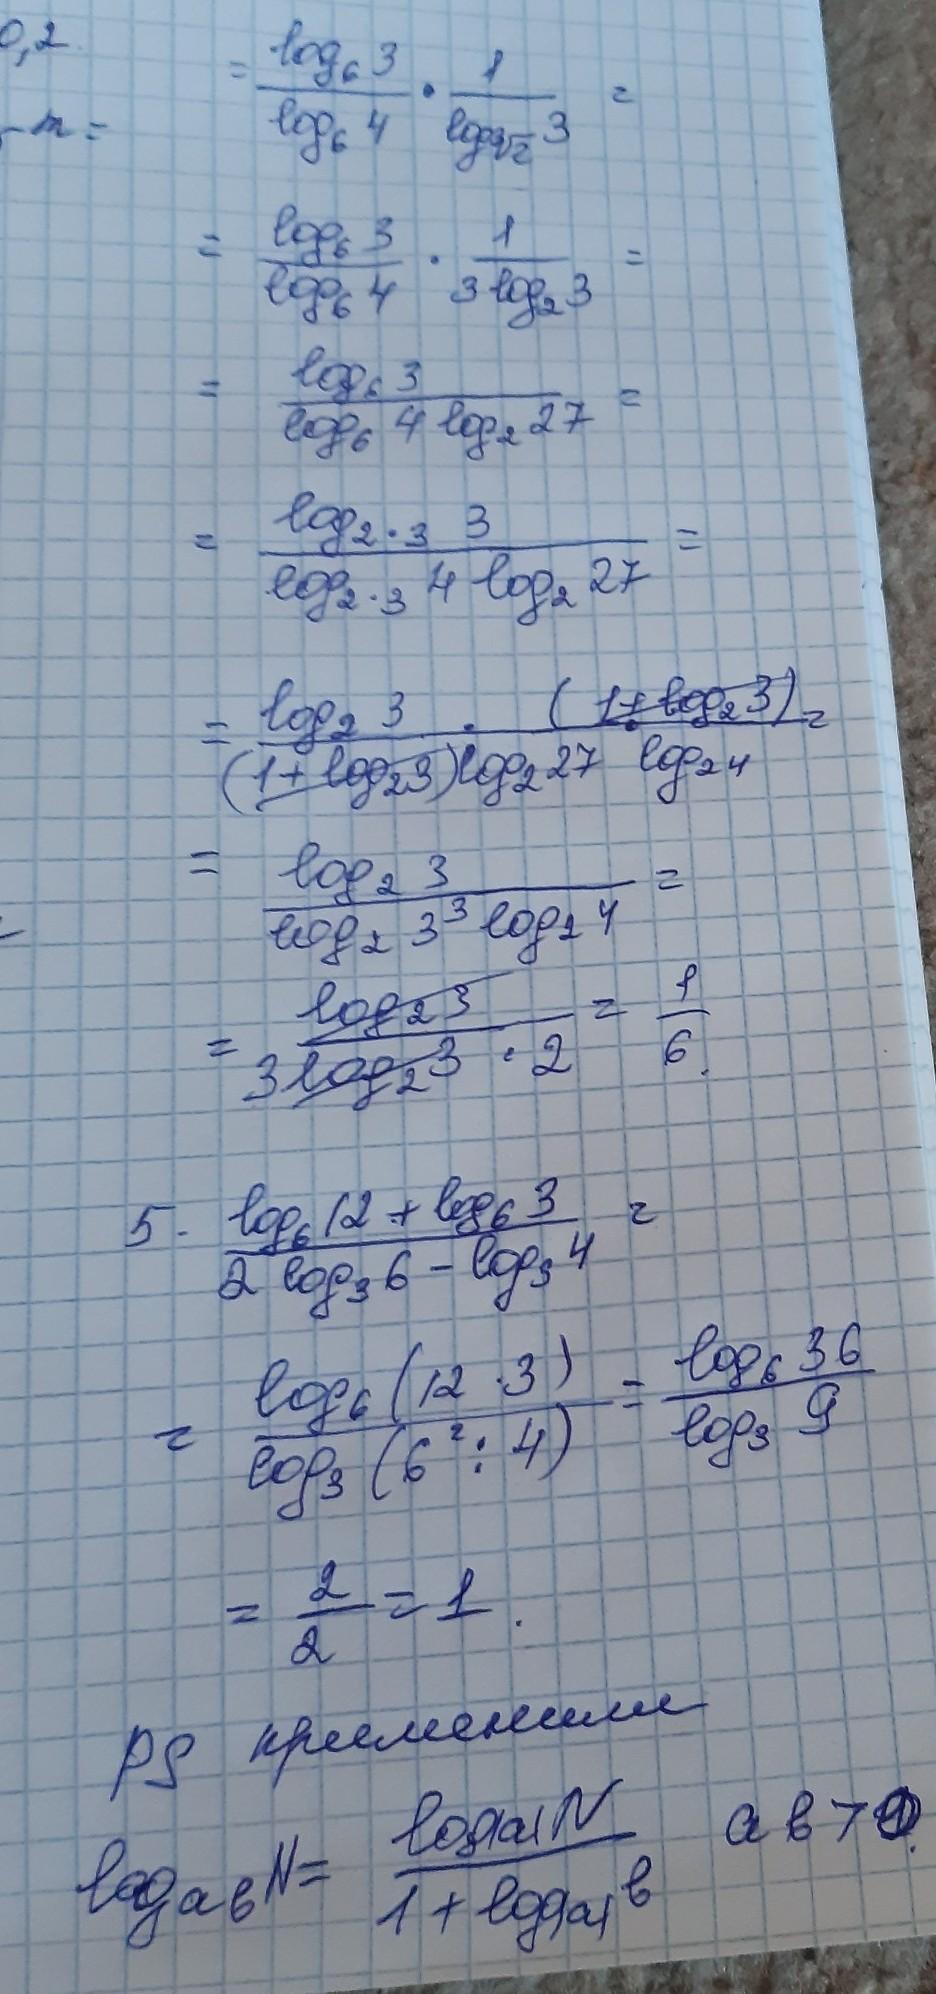 0,2
= log₆ 3 / log₆ 4 · 1 / log ∛2 3 =
- m =
= log₆ 3 / log₆ 4 · 1 / 3 log₂ 3 =
= log₆ 3 / log₆ 4 log₂ 27 =
= log₂.₃ 3 / log₂.₃ 4 log₂ 27 =
= log₂ 3 · (1 + log₂ 3) / (1 + log₂ 3) log₂ 27 log₂ 4 =
= log₂ 3 / log₂ 3³ log₂ 4 =
= log₂ 3 / 3 log₂ 3 · 2 = 1 / 6.
5. log₆ 12 + log₆ 3 / 2 log₃ 6 - log₃ 4 =
= log₆ (12 · 3) / log₃ (6² : 4) = log₆ 36 / log₃ 9
= 2 / 2 = 1.
PS применили
log ab N = log |a| N / 1 + log |a| b ab > 0.